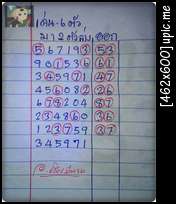 เด่น-6 ตัว
มา 2 ตัว
5 6 7 1 9 3 53
9 0 1 5 3 6 61
3 4 5 9 7 1 47
4 5 6 0 8 2 26
6 7 8 2 0 4 87
2 3 4 8 6 0 36
1 2 3 7 5 9 37
3 4 5 9 7 1
[462x600] upic.me